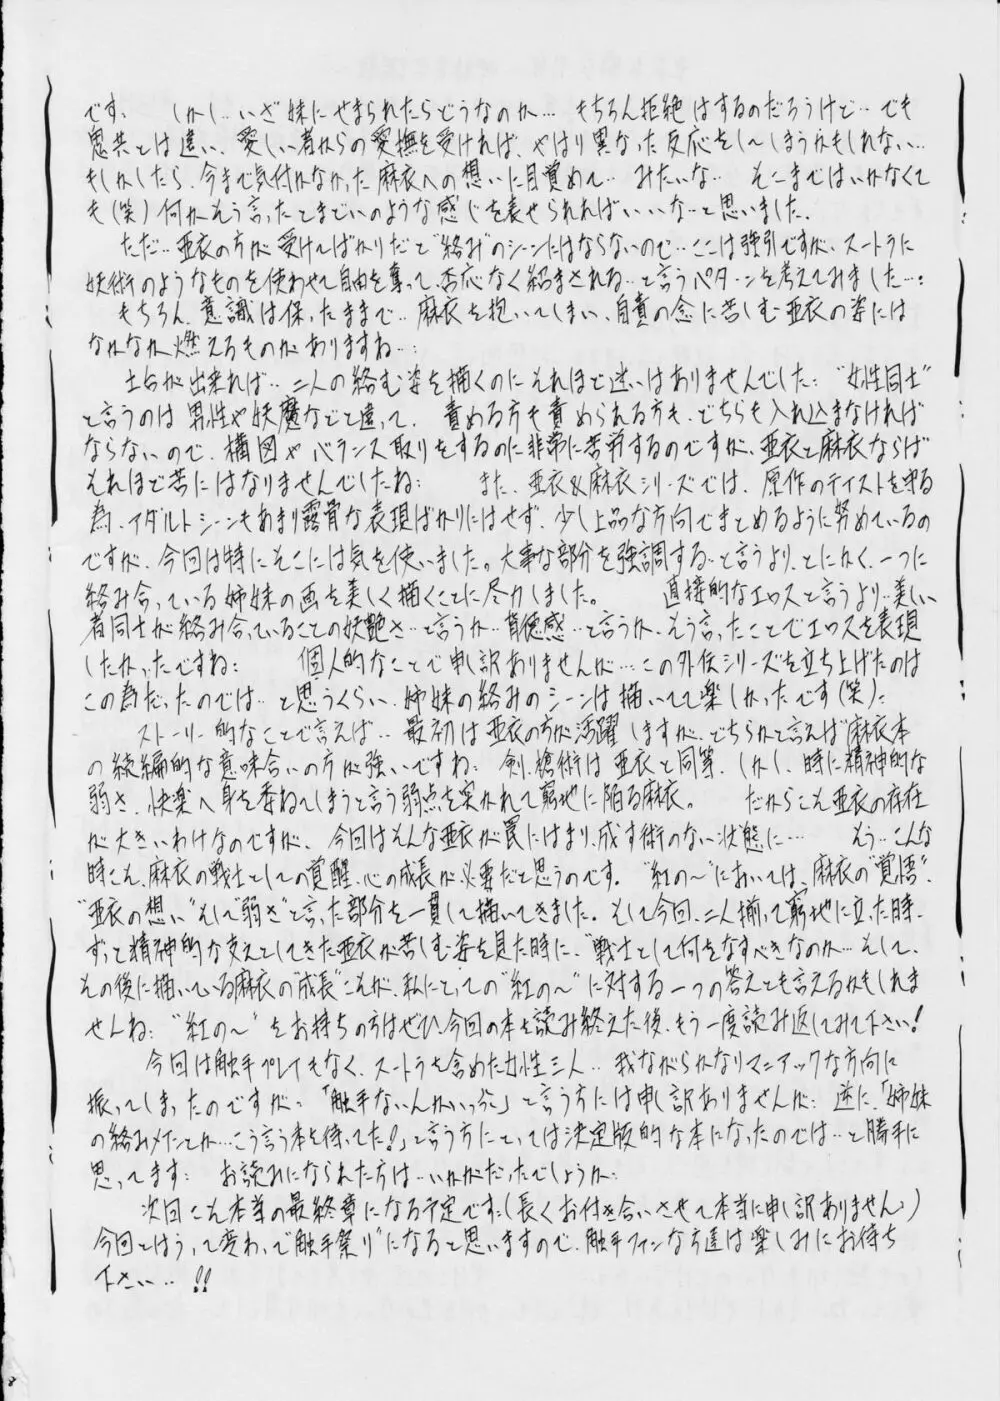 です、 しかし‥いざ妹にせまられたらどうなのか… もちろん拒絶はするのだろうけど‥でも
鬼共とは違い、愛しい者からの愛撫を受ければ、やはり異なった反応をしてしまうかもしれない…
もしかしたら、今まで気付かなかった麻衣への想いに目覚めて‥ みたいな‥ そこまではいかなくて
も(笑)何かそう言ったとまどいのような感じを表せられればいいな‥と思いました。
ただ‥亜衣の方が受けてばかりだと"絡み"のシーンにはならないので‥ここは強引ですが、スートラに
妖術のようなものを使わせて自由を奪って、否応なく絡まされる‥と言うパターンを考えてみました…:
もちろん、意識は保ったままで‥麻衣を抱いてしまい、自責の念に苦しむ亜衣の姿には
なかなか燃えるものがありますね…:
土台が出来れば‥二人の絡む姿を描くのにそれほど迷いはありませんでした: "女性同士"
と言うのは男性や妖魔などと違って、責める方も責められる方も、どちらも入れ込まなければ
ならないので、構図やバランス取りをするのに非常に苦労するのですが、亜衣と麻衣ならば
それほど苦にはなりませんでしたね: また、亜衣&麻衣シリーズでは、原作のテイストを守る
為、アダルトシーンもあまり露骨な表現ばかりにはせず、少し上品な方向でまとめるように努めているの
ですが、今回は特にそこには気を使いました。大事な部分を強調する‥と言うより、とにかく、一つに
絡み合っている姉妹の画を美しく描くことに尽力しました。 直接的なエロスと言うより‥美しい
者同士が絡み合っていることの妖艶さ‥と言うか‥背徳感‥と言うか、そう言ったことでエロスを表現
したかったですね: 個人的なことで申し訳ありませんが…この外伝シリーズを立ち上げたのは
この為だったのでは‥と思うくらい、姉妹の絡みのシーンは描いてて楽しかったです(笑):
ストーリー的なことで言えば‥ 最初は亜衣の方が活躍しますが、どちらかと言えば麻衣本
の続編的な意味合いの方が強いですね: 剣、槍術は亜衣と同等、しかし、時に精神的な
弱さ、快楽へ身を委ねてしまうと言う弱点を突かれて窮地に陥る麻衣。 だからこそ亜衣の存在
が大きいわけなのですが、今回はそんな亜衣が罠にはまり、成す術のない状態に… もう‥こんな
時こそ、麻衣の戦士としての覚醒、心の成長が必要だと思うのです。"紅の〜"においては、麻衣の"覚悟"、
"亜衣の想い"そして"弱さ"と言った部分を一貫して描いてきました。そして今回、二人揃って窮地に立った時、
ずっと精神的な支えとしてきた亜衣が苦しむ姿を見た時に、"戦士として何をなすべきなのか…そして、
その後に描いている麻衣の"成長"こそが、私にとっての"紅の〜"に対する一つの答えとも言えるかもしれま
せんね: "紅の〜"をお持ちの方はぜひ、今回の本を読み終えた後、もう一度読み返してみて下さい!
今回は触手プレイもなく、スートラも含めた女性三人‥我ながらかなりマニアックな方向に
振ってしまったのですが: 「触手ないんかいっ」と言う方には申し訳ありませんが: 逆に、「姉妹
の絡みメインとか…こう言う本を待ってた!」と言う方にとっては決定版的な本になったのでは‥と勝手に
思ってます: お読みになられた方は‥いかがだったでしょうか:
次回こそ本当の最終章になる予定です:(長くお付き合いさせて本当に申し訳ありません:)
今回とはうって変わって"触手祭り"になると思いますので、触手ファンな方達は楽しみにお待ち
下さい‥!!
8